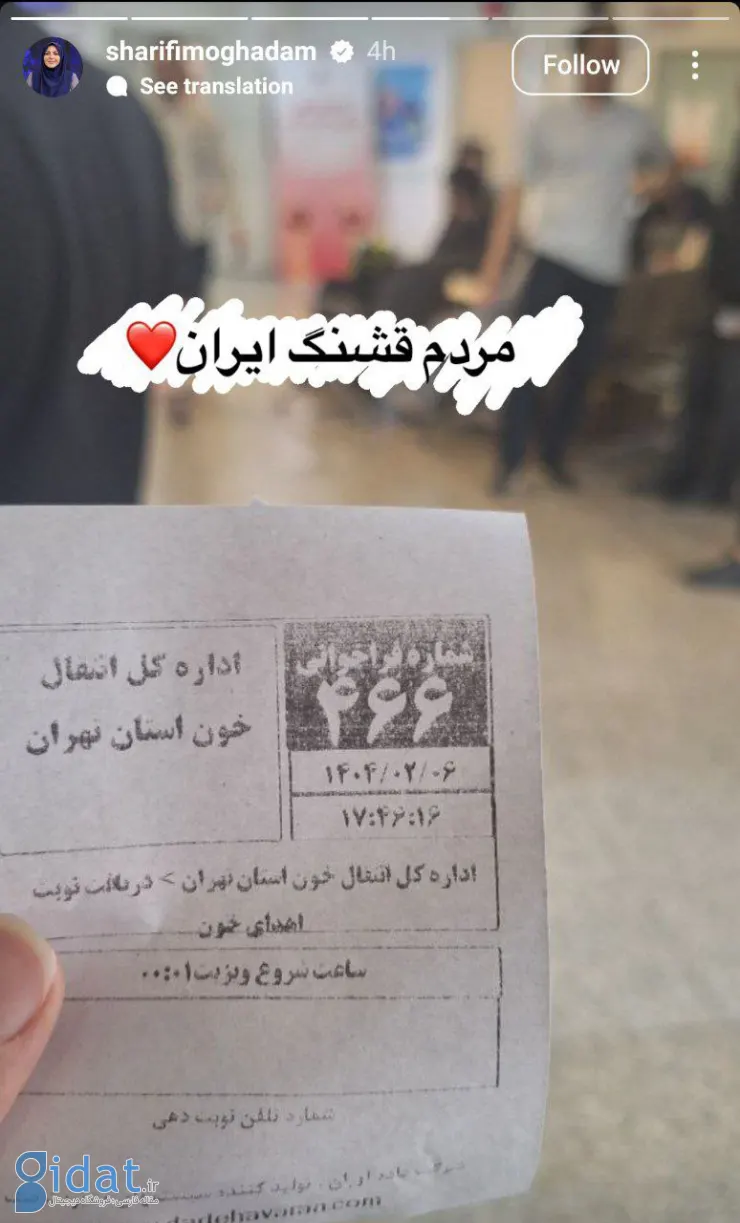 sharifimoghadam 4h
See translation
Follow
مردم قشنگ ایران❤️
شماره فراخوانی
۴۶۶
اداره کل انتقال
خون استان تهران
۱۴۰۴/۰۲/۰۶
۱۷:۴۶:۱۶
اداره کل انتقال خون استان تهران > دریافت نوبت
اهدای خون
ساعت شروع ویزیت۰۰:۰۱
شماره تلفن نوبت دهی
تولید کننده
dadehavaran.com
Gidat.ir
مقاله فارسی؛ فروشگاه دیجیتال